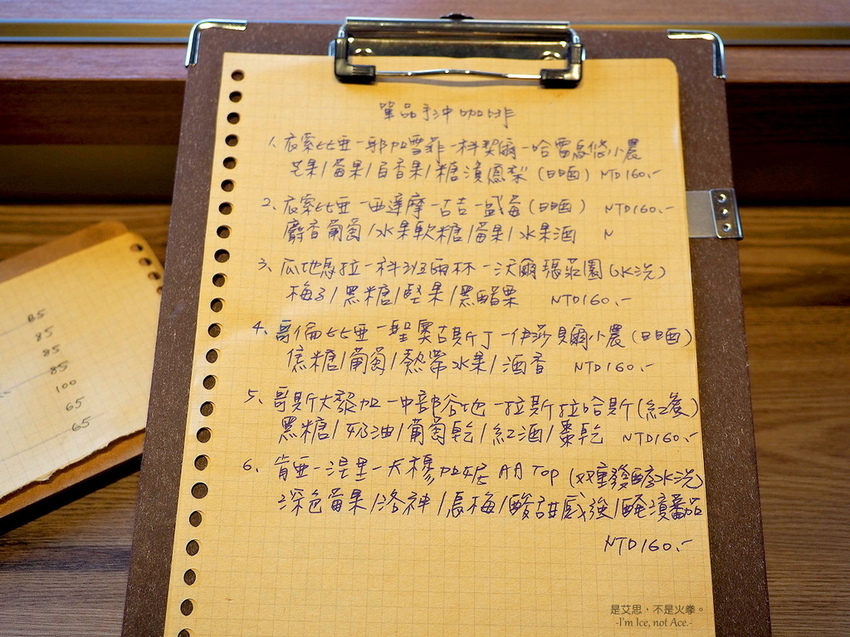 單品手沖咖啡
1. 衣索比亞-耶加雪菲-科契爾-哈雷悠小農
芒果/莓果/百香果/糖漬鳳梨 (日晒) NTD160.-
2. 衣索比亞-西達摩-古吉-盛莓 (日晒) NTD160.-
麝香葡萄/水果軟糖/莓果/水果酒 N
3. 瓜地馬拉-科班雨林-沃爾瑪莊園 (水洗)
梅子/黑糖/堅果/黑醋栗 NTD160.-
4. 哥倫比亞-聖奧古斯丁-伊莎貝爾小農 (日晒)
焦糖/葡萄/熱帶水果/酒香 NTD160.-
5. 哥斯大黎加-中部谷地-拉斯拉哈斯 (紅蜜)
黑糖/奶油/葡萄乾/紅酒/棗乾 NTD160.-
6. 肯亞-涅里-大穆加尼 AA TOP (双重發酵水洗)
深色莓果/洛神/烏梅/酸甜感強/醃漬蕃茄
NTD160.-
85
85
85
85
100
65
65
是艾思，不是火拳。
-I'm Ice, not Ace.-